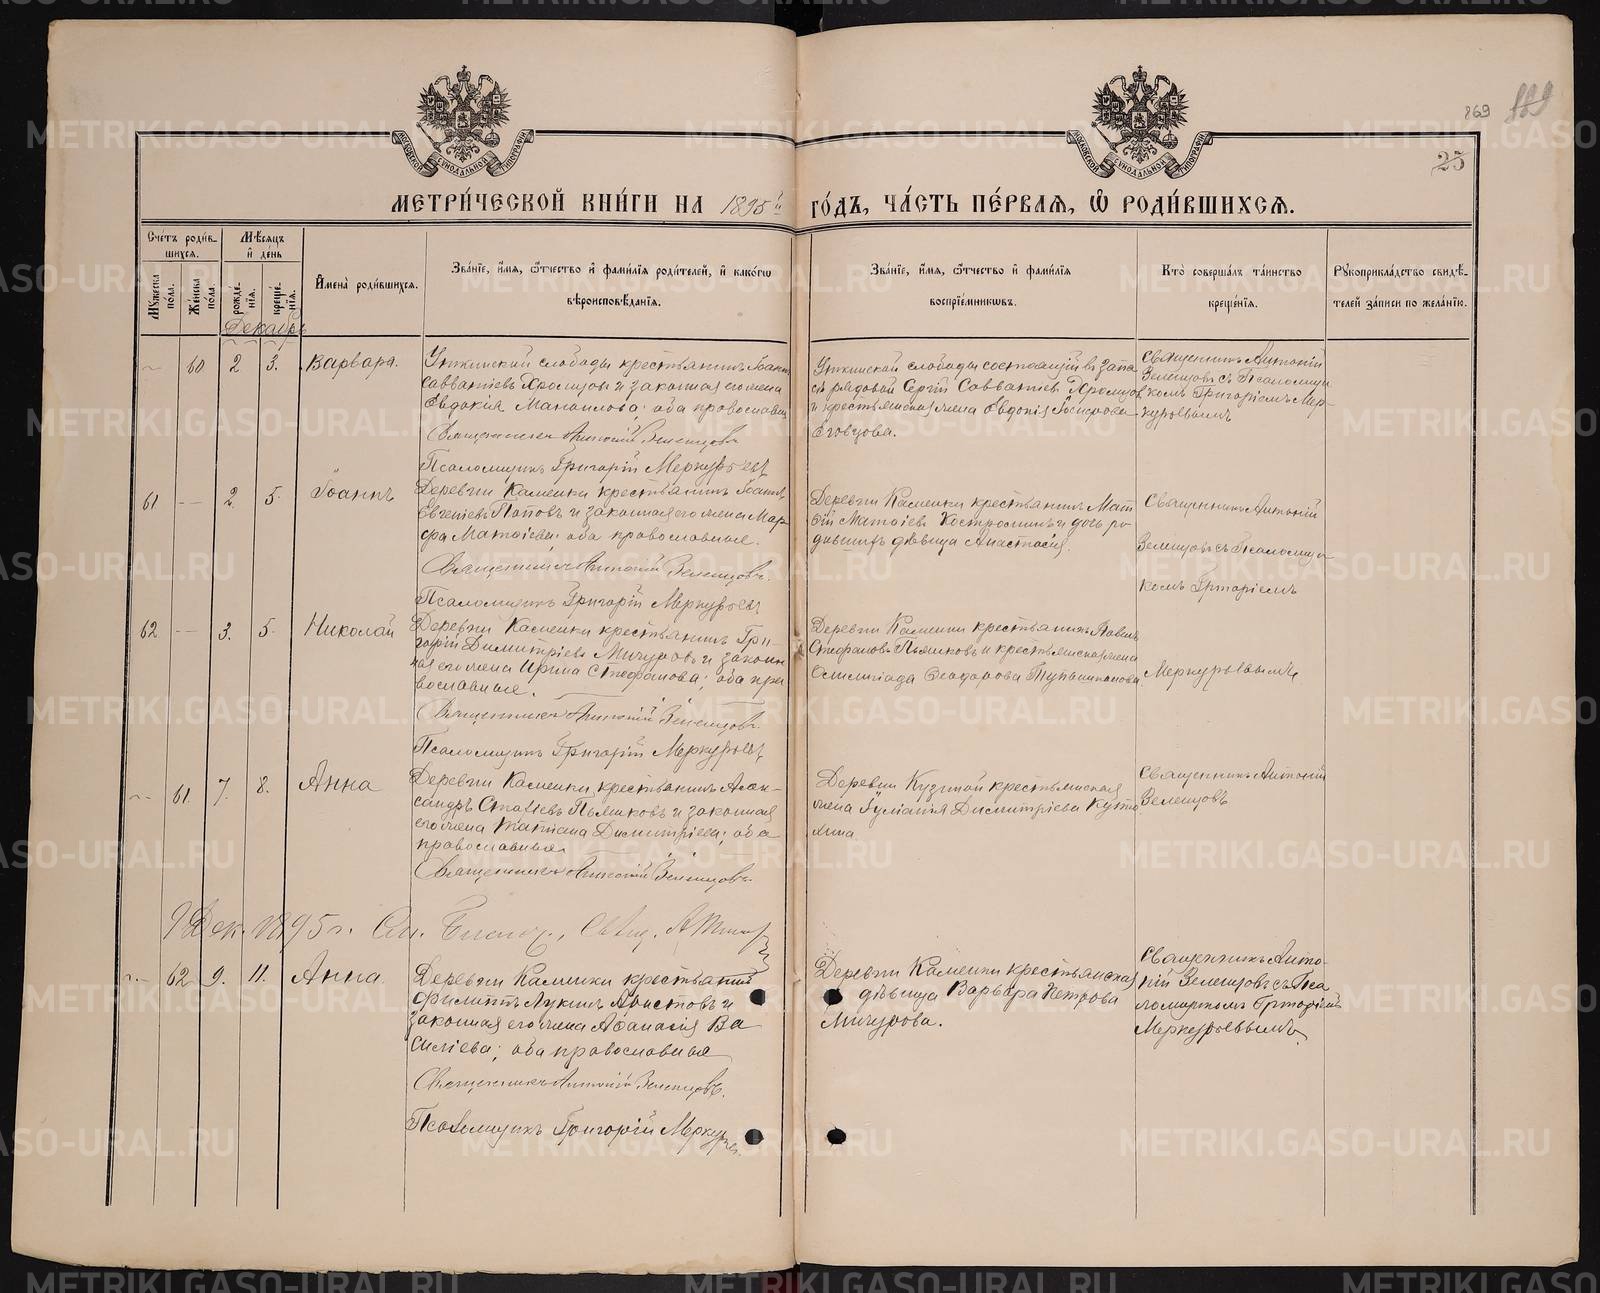 869
25
МОСКОВСКОЙ СѴНОДАЛЬНОЙ ТИПОГРАФІИ
МЕТРИ́ЧЕСКОЙ КНИ́ГИ НА 1895й ГО́ДЪ, ЧА́СТЬ ПЕ́РВАЯ, Ѽ РОДИ́ВШИХСЯ.
Сче́тъ роди́в-
шихся.
Мѣ́сяцъ
и҆ де́нь
Мꙋ́жеска по́ла.
Же́нска по́ла.
рожде́нїѧ.
креще́нїѧ.
И҆мена̀ роди́вшихся.
Зва́нїе, и҆́мя, ѻ҆́тчество и҆ фами́лїя роди́телей, и҆ како́гѡ
вѣроисповѣ́данїя.
Зва́нїе, и҆́мя, ѻ҆́тчество и҆ фами́лїя
воспрїе́мникѡвъ.
Кто̀ соверша́лъ та́инство
креще́нїя.
Рꙋкоприкла́дство свидѣ́-
телей за́писи по жела́нїю.
Декабрь
60 2 3. Варвара.
Уткинской слободы крестьянинъ Іоаннъ
Савватіевъ Хромцов и законная его жена
Евдокія Манаилова; оба православные
Священникъ Антоній Зеленцовъ
Псаломщикъ Григорій Меркурьевъ
Уткинской слободы состоящій въ запа
сѣ рядовой Сергій Савватіев Хромцов
и крестьянская жена Евдокія
Священникъ Антоній
Зеленцовъ съ Псаломщи
комъ Григоріемъ Мер-
курьевымъ
61 — 2. 5. Іоаннъ
Деревни Каменки крестьянинъ Іоаннъ
Евгеніевъ Поповъ и законная его жена Мар-
фа Матѳіева; оба православные.
Священникъ Антоній Зеленцовъ
Псаломщикъ Григорій Меркурьевъ
Деревни Каменки крестьянинъ Мат
ѳій Матѳіевъ Костроминъ и дочь ро-
дившихъ дѣвица Анастасія.
Священникъ Антоній
Зеленцовъ съ Псаломщи-
комъ Григоріемъ
Меркурьевымъ
62 — 3. 5. Николай
Деревни Каменки крестьянинъ Гри-
горій Димитріевъ Мичуровъ и закон
ная его жена Ирина Стефанова; оба пра
вославные.
Священникъ Антоній Зеленцовъ
Псаломщикъ Григорій Меркурьевъ
Деревни Каменки крестьянинъ Павелъ
Стефановъ Пьянковъ и крестьянская жена
Ѳеодорова
61. 7. 8. Анна
Деревни Каменки крестьянинъ Алек-
сандръ Пьянковъ и законная
его жена Татіана Димитріева; оба
православные.
Священникъ Антоній Зеленцовъ
Деревни Кузиной крестьянская
жена Іуліанія Димитріева
Священникъ Антоній
Зеленцовъ
9 Дек. 1895 г.
62 9. 11. Анна.
Деревни Каменки крестьянинъ
Филиппъ Лукинъ Аристовъ и
законная его жена Аѳанасія Ва
силіева; оба православные
Священникъ Антоній Зеленцовъ.
Псаломщикъ Григорій Меркурьев.
Деревни Каменки крестьянская
дѣвица Варвара Петрова
Мичурова.
Священникъ Анто-
ній Зеленцовъ съ Пса
ломщикомъ Григоріемъ
Меркурьевымъ
METRIKI.GASO-URAL.RU